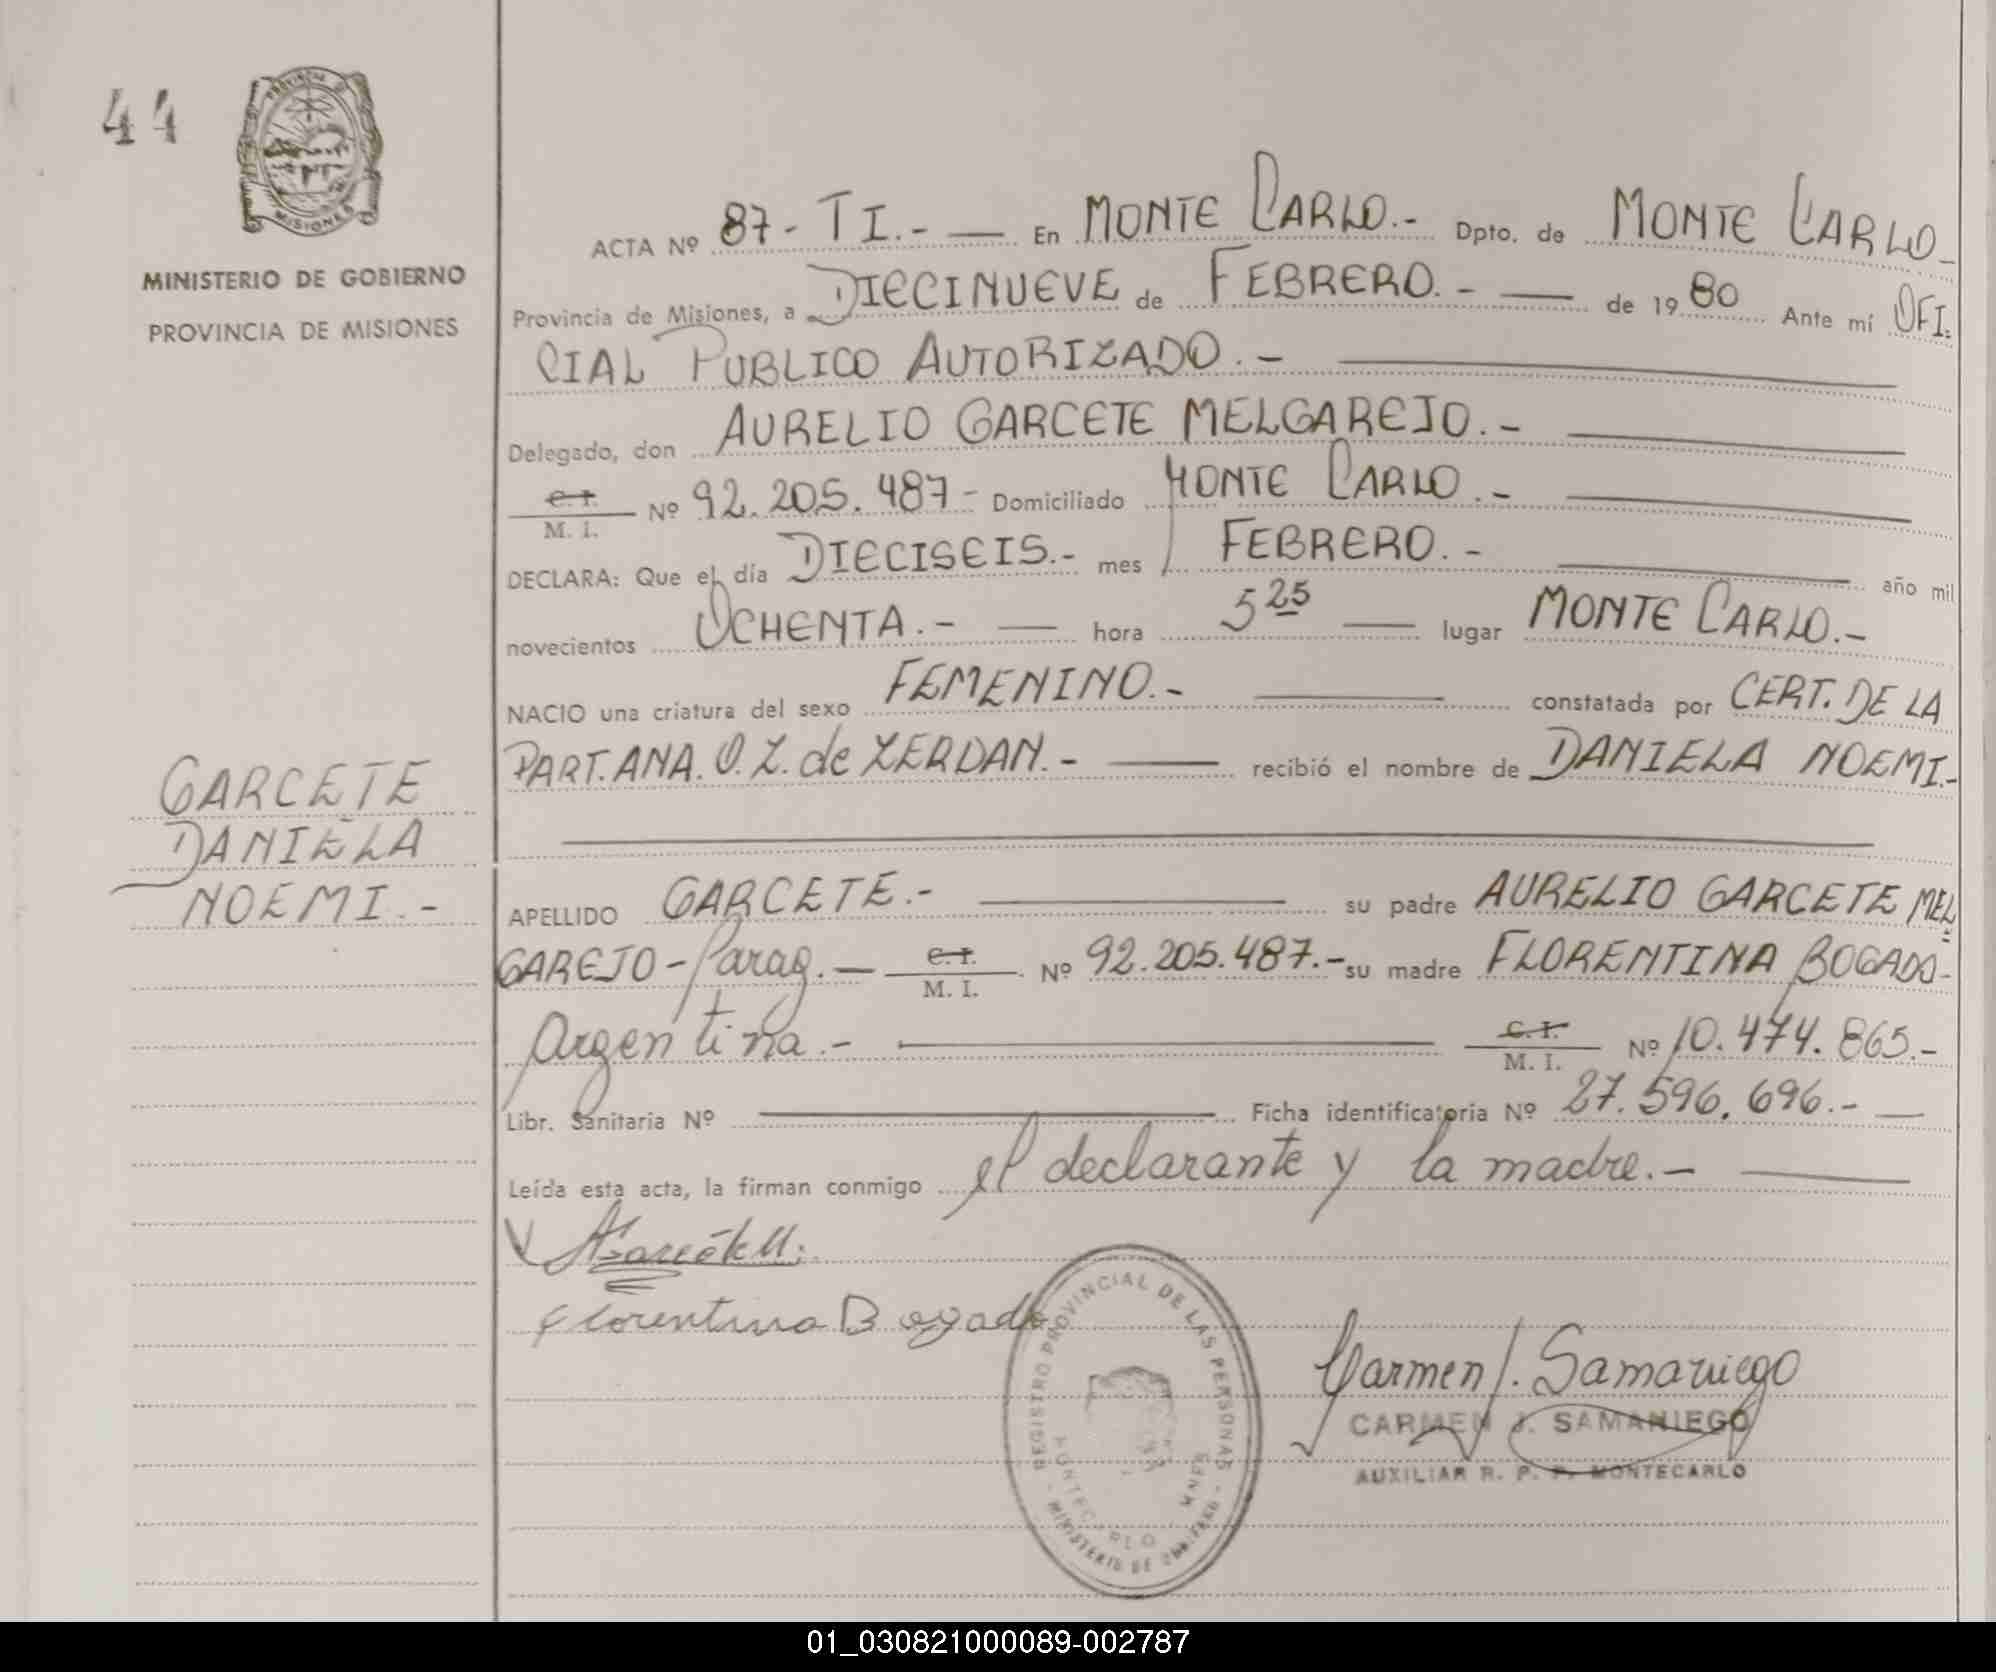 44
PROVINCIA DE
MISIONES
MINISTERIO DE GOBIERNO
PROVINCIA DE MISIONES
ACTA Nº 87 - T I. - — En MONTE CARLO. - Dpto. de MONTE CARLO -
Provincia de Misiones, a DIECINUEVE de FEBRERO. - — de 19 80 Ante mí OFI-
CIAL PUBLICO AUTORIZADO. - —
Delegado, don AURELIO GARCETE MELGAREJO. - —
C. I.
M. I. Nº 92.205.487 - Domiciliado MONTE CARLO. - —
DECLARA: Que el día DIECISEIS. - mes FEBRERO. - — año mil
novecientos OCHENTA. - — hora 5 25 — lugar MONTE CARLO. -
NACIO una criatura del sexo FEMENINO. - — constatada por CERT. DE LA
PART. ANA. O. Z. de ZERDAN. - — recibió el nombre de DANIELA NOEMI. -
GARCETE
DANIELA
NOEMI. -
APELLIDO GARCETE. - — su padre AURELIO GARCETE MEL
GAREJO - Parag. — C. I.
M. I. Nº 92.205.487. - su madre FLORENTINA BOGADO -
Argentina. - — C. I.
M. I. Nº 10.474.865. -
Libr. Sanitaria Nº — Ficha identificatoria Nº 27.596.696. - —
Leída esta acta, la firman conmigo el declarante y la madre. - —
Florentina Bogado
REGISTRO PROVINCIAL DE LAS PERSONAS
MONTECARLO MNES
- MINISTERIO DE GOBIERNO -
Carmen J. Samaniego
CARMEN J. SAMANIEGO
AUXILIAR R. P. P. MONTECARLO
01_030821000089-002787